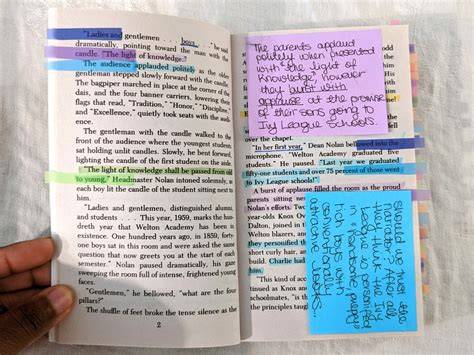 "Ladies and gentlemen . . . boys . . ." he said
dramatically, pointing toward the man with the
candle. "The light of knowledge."
The audience applauded politely as the older
gentleman stepped slowly forward with the candle.
The bagpiper marched in place at the corner of the
dais, and the four banner carriers, lowering their
flags that read, "Tradition," "Honor," "Discipline,"
and "Excellence," quietly took seats with the audi-
ence.
The gentleman with the candle walked to the
front of the audience where the youngest students
sat holding unlit candles. Slowly, he bent forward,
lighting the candle of the first student on the aisle.
"The light of knowledge shall be passed from old
to young," Headmaster Nolan intoned solemnly, as
each boy lit the candle of the student sitting next to
him.
"Ladies and gentlemen, distinguished alumni,
and students . . . This year, 1959, marks the one
hundredth year that Welton Academy has been in
existence. One hundred years ago, in 1859, forty-
one boys sat in this room and were asked the same
question that now greets you at the start of each
semester." Nolan paused dramatically, his gaze
sweeping the room full of intense, frightened young
faces.
"Gentlemen," he bellowed, "what are the four
pillars?"
The shuffle of feet broke the tense silence as the
2
The parents applaud
politely when presented
with the light of
Knowledge, however
they burst with
applause at the promise
of their sons going to
Ivy League Schools.
over the chapel.
"In her first year," Dean Nolan bellowed into the
microphone, "Welton Academy graduated five
students." He paused. "Last year we graduated fifty-
one students and over 75 percent of those went
to Ivy League schools!"
A burst of applause filled the room as the proud
Nolan's efforts. Two
year-olds Knox Ov
Dalton, joined in th
Welton blazers, and
they personified th
short curly hair, an
build.
Charlie had
"This kind of acco
schoolmates, "is th
Should we trust this
narrator? After all,